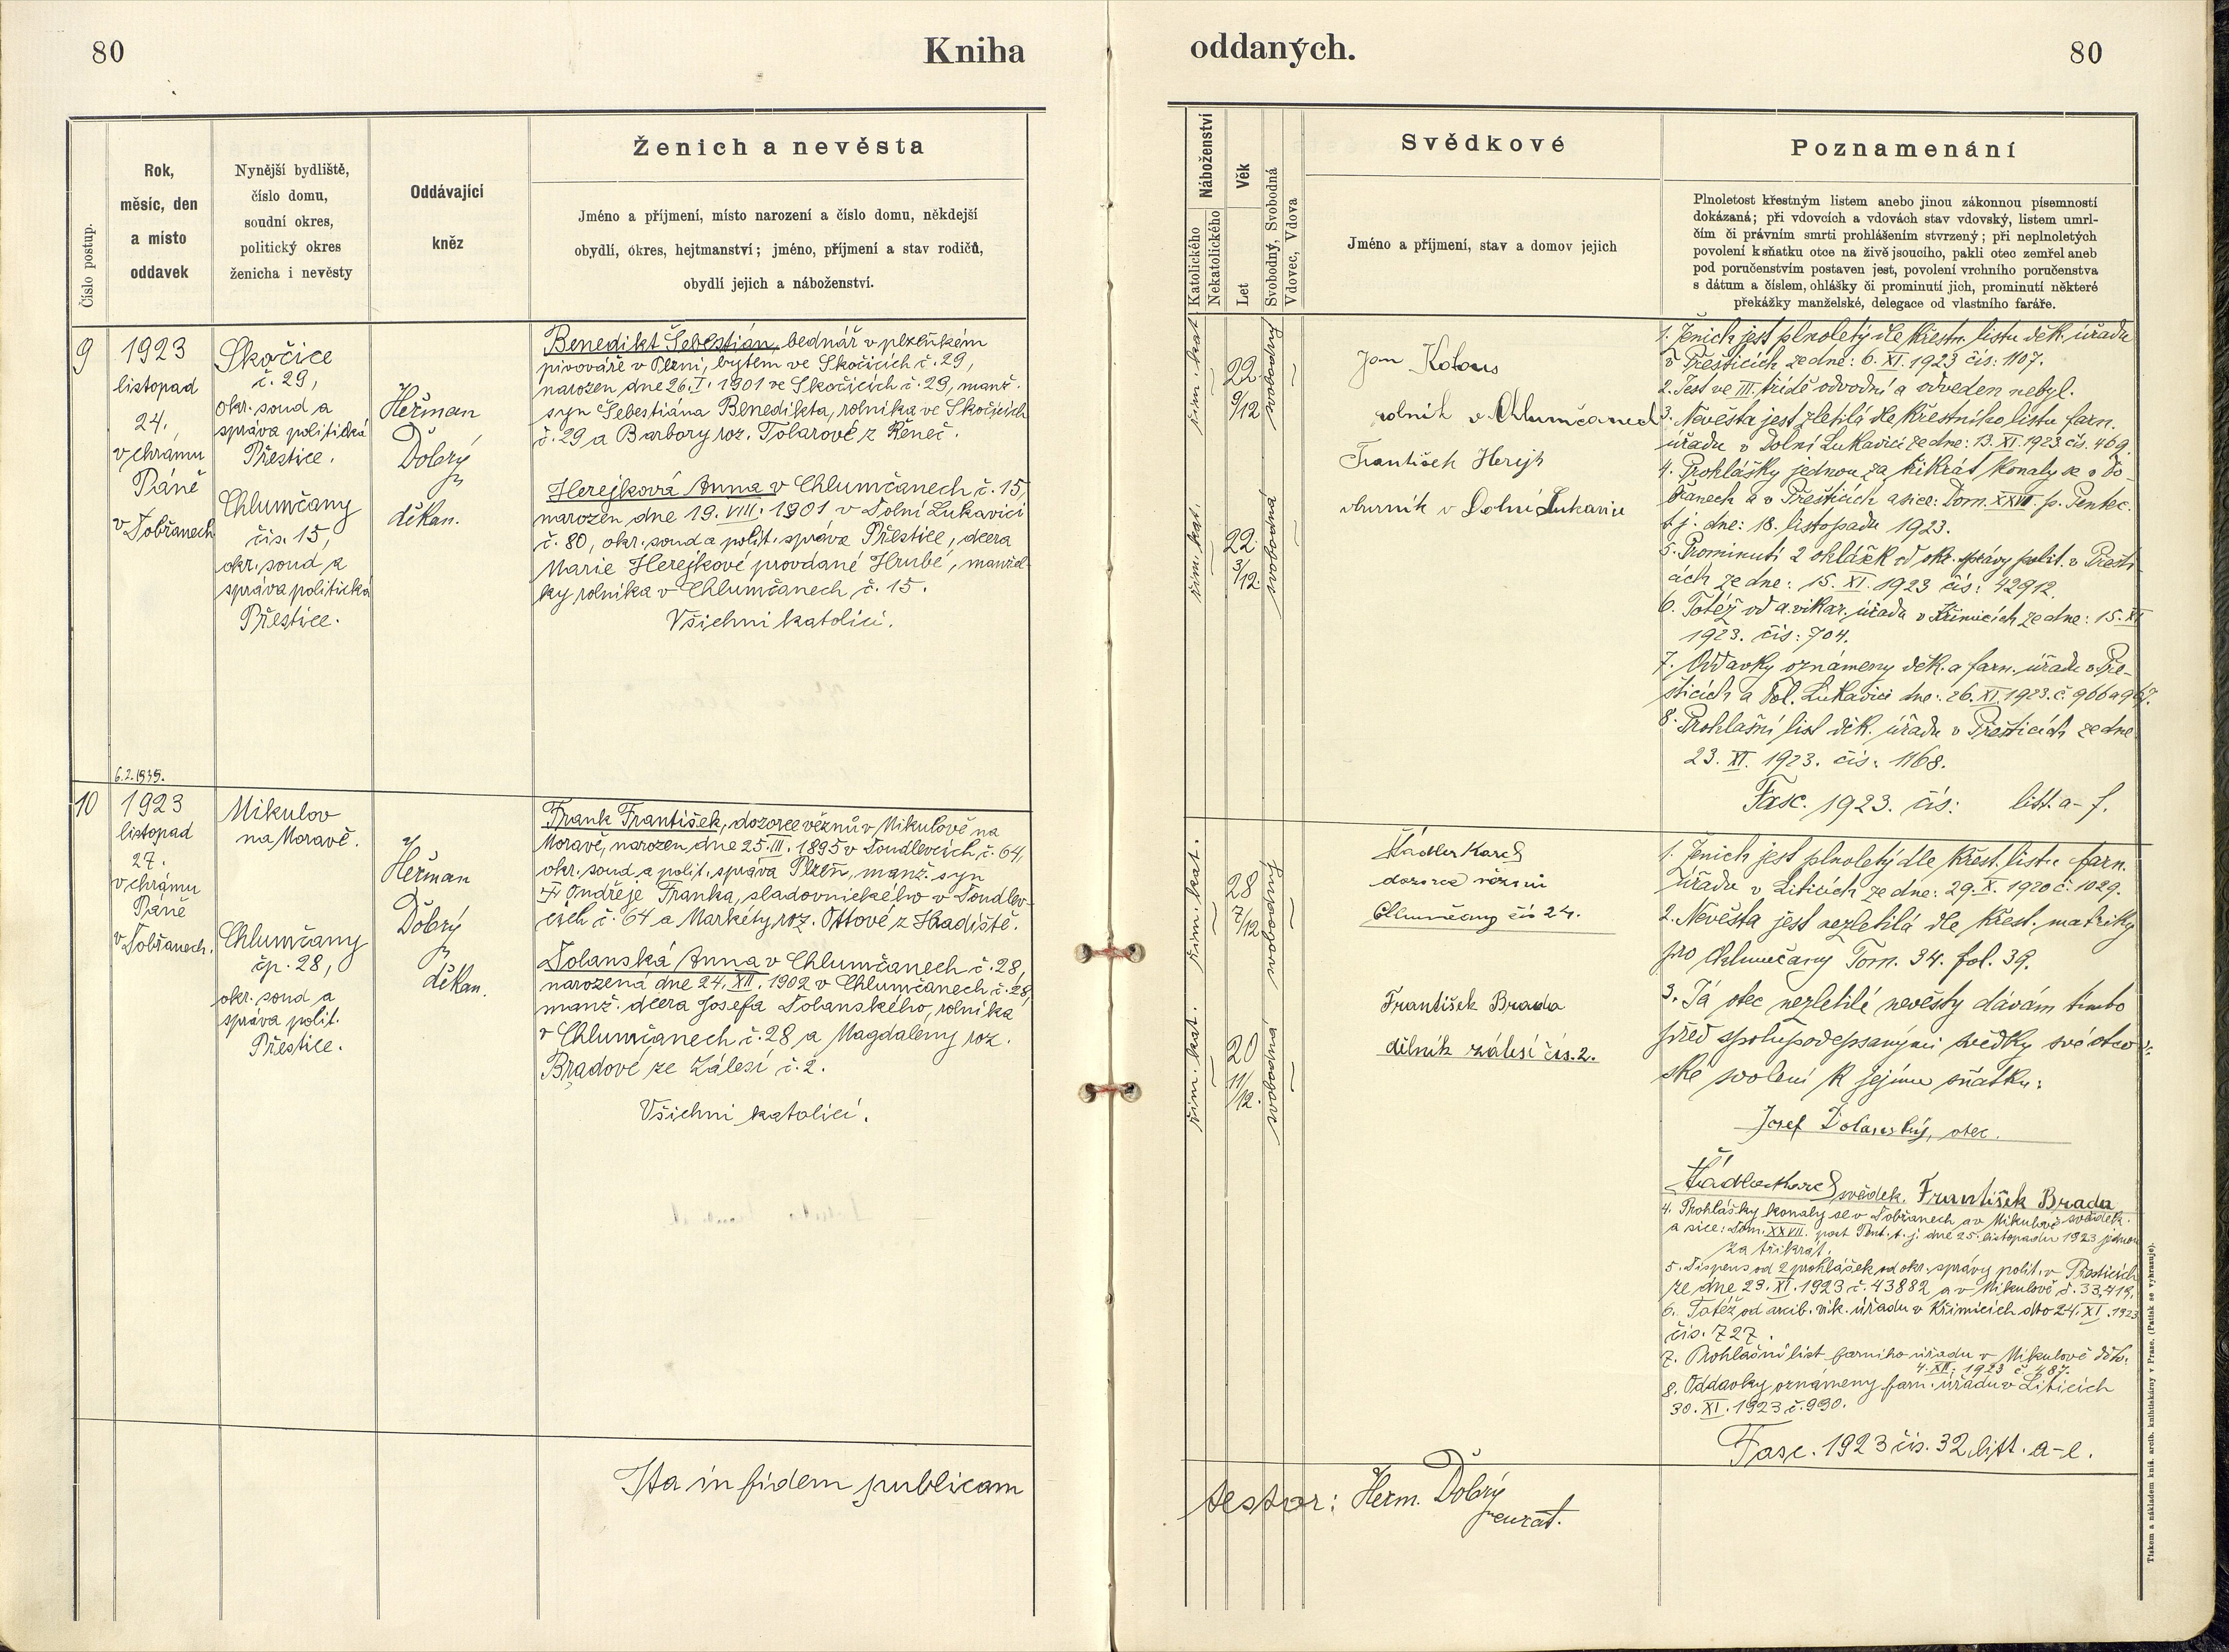 80
Kniha
oddaných.
80
Číslo postup.
Rok,
měsíc, den
a místo
oddavek
Nynější bydliště,
číslo domu,
soudní okres,
politický okres
ženicha i nevěsty
Oddávající
kněz
Ženich a nevěsta
Jméno a příjmení, místo narození a číslo domu, někdejší
obydlí, okres, hejtmanství; jméno, příjmení a stav rodičů,
obydlí jejich a náboženství.
Náboženství
Katolického
Nekatolického
Věk
Let
Svobodný, Svobodná
Vdovec, Vdova
Svědkové
Jméno a příjmení, stav a domov jejich
Poznamenání
Plnoletost křestným listem anebo jinou zákonnou písemností
dokázaná; při vdovcích a vdovách stav vdovský, listem umrl-
čím či právním smrti prohlášením stvrzený; při neplnoletých
povolení k sňatku otce na živě jsoucího, pakli otec zemřel aneb
pod poručenstvím postaven jest, povolení vrchního poručenstva
s dátum a číslem, ohlášky či prominutí jich, prominutí některé
překážky manželské, delegace od vlastního faráře.
9
1923
listopad
24.
v chrámu
Páně
v Dobřanech
6.2.1939.
Skočice
č. 29,
okr. soud a
správa politická
Přeštice.
Chlumčany
čís. 15,
okr. soud a
správa politická
Přeštice.
Heřman
Dobrý
děkan.
Benedikt Šebestián, bednář v plzeňském
pivováře v Plzni, bytem ve Skočicích č. 29,
narozen dne 26. I. 1901 ve Skočicích č. 29, manž.
syn Šebestiána Benedikta, rolníka ve Skočicích
č. 29 a Barbory roz. Tolarové z Řeneč.
Herejková Anna v Chlumčanech č. 15,
narozen dne 19. VIII. 1901 v Dolní Lukavici
č. 80, okr. soud a polit. správa Přeštice, dcera
Marie Herejkové provdané Hrubé, manžel-
ky rolníka v Chlumčanech č. 15.
Všichni katolíci.
řím. kat.
22
9/12
svobodný
řím. kat.
22
3/12
svobodná
Jan Kolous
rolník v Chlumčanech
František Herejk
v Dolní Lukavici
1. Ženich jest plnoletý dle křestn. listu děk. úřadu
v Přešticích ze dne: 6. XI. 1923 čís: 1107.
2. Jest ve III. třídě odvodní a odveden nebyl.
3. Nevěsta jest zletilá dle křestního listu farn.
úřadu v Dolní Lukavici ze dne: 13. XI. 1923 čís. 469.
4. Prohlášky jednou za třikrát konaly se v Do-
břanech a v Přešticích a sice: Dom. XXVI. p. Pentec.
t. j. dne: 18. listopadu 1923.
5. Prominutí 2 ohlášek od okr. správy polit. v Přešti-
cích ze dne: 15. XI. 1923 čís: 42912.
6. Totéž od a. vikar. úřadu v Křimicích ze dne: 15. XI.
1923. čís: 704.
7. Oddavky oznámeny děk. a farn. úřadu v Pře-
šticích a Dol. Lukavici dne: 26. XI. 1923. č. 966 a 967.
8. Prohlašní list děk. úřadu v Přešticích ze dne
23. XI. 1923. čís: 1168.
Fasc. 1923. čís: litt. a-f.
10
1923
listopad
27.
v chrámu
Páně
v Dobřanech.
Mikulov
na Moravě.
Chlumčany
čp. 28,
okr. soud a
správa polit.
Přeštice.
Heřman
Dobrý
děkan.
Frank František, dozorce věznů v Mikulově na
Moravě, narozen dne 25. III. 1895 v Doudlevcích č. 64,
okr. soud a polit. správa Plzeň, manž. syn
Ondřeje Franka, sladovnického v Doudlev-
cích č. 64 a Markéty roz. Ottové z Hradiště.
Dolanská Anna v Chlumčanech č. 28,
narozená dne 24. XII. 1902 v Chlumčanech č. 28,
manž. dcera Josefa Dolanského, rolníka
v Chlumčanech č. 28 a Magdaleny roz.
Bradové ze Zálesí č. 2.
Všichni katolíci.
řím. kat.
28
7/12
svobodný
řím. kat.
20
11/12
svobodná
Karel
dozorce věznů
Chlumčany čís 24.
František Brada
dělník zálesí čís. 2.
1. Ženich jest plnoletý dle křest. listu farn.
úřadu v Liticích ze dne: 29. X. 1920 č: 1029.
2. Nevěsta jest nezletilá dle křest. matriky
pro Chlumčany Tom. 34. fol. 39.
3. Já otec nezletilé nevěsty dávám tímto
před spolupodepsanými svědky své otcov-
ské svolení k jejímu sňatku:
Josef Dolanský, otec.
svědek. František Brada
svědek.
4. Prohlášky konaly se v Dobřanech a v Mikulově
a sice: Dom. XXVII. post Pent. t. j. dne 25. listopadu 1923 jednou
za třikrát.
5. Dispens od 2 prohlášek od okr. správy polit. v Přešticích
ze dne 23. XI. 1923 č. 43882 a v Mikulově č. 33.419.
6. Totéž od arcib. vik. úřadu v Křimicích dto 24. XI. 1923
čís. 727.
7. Prohlašní list farního úřadu v Mikulově dto.
4. XII. 1923 č. 487.
8. Oddavky oznámeny farn. úřadu v Liticích
30. XI. 1923 č. 990.
Fasc. 1923 čís. 32 litt. a-e.
Ita in fidem publicam
testor: Heřm. Dobrý
curat.
Tiskem a nákladem kníž. arcib. knihtiskárny v Praze. (Patisk se vyhrazuje).